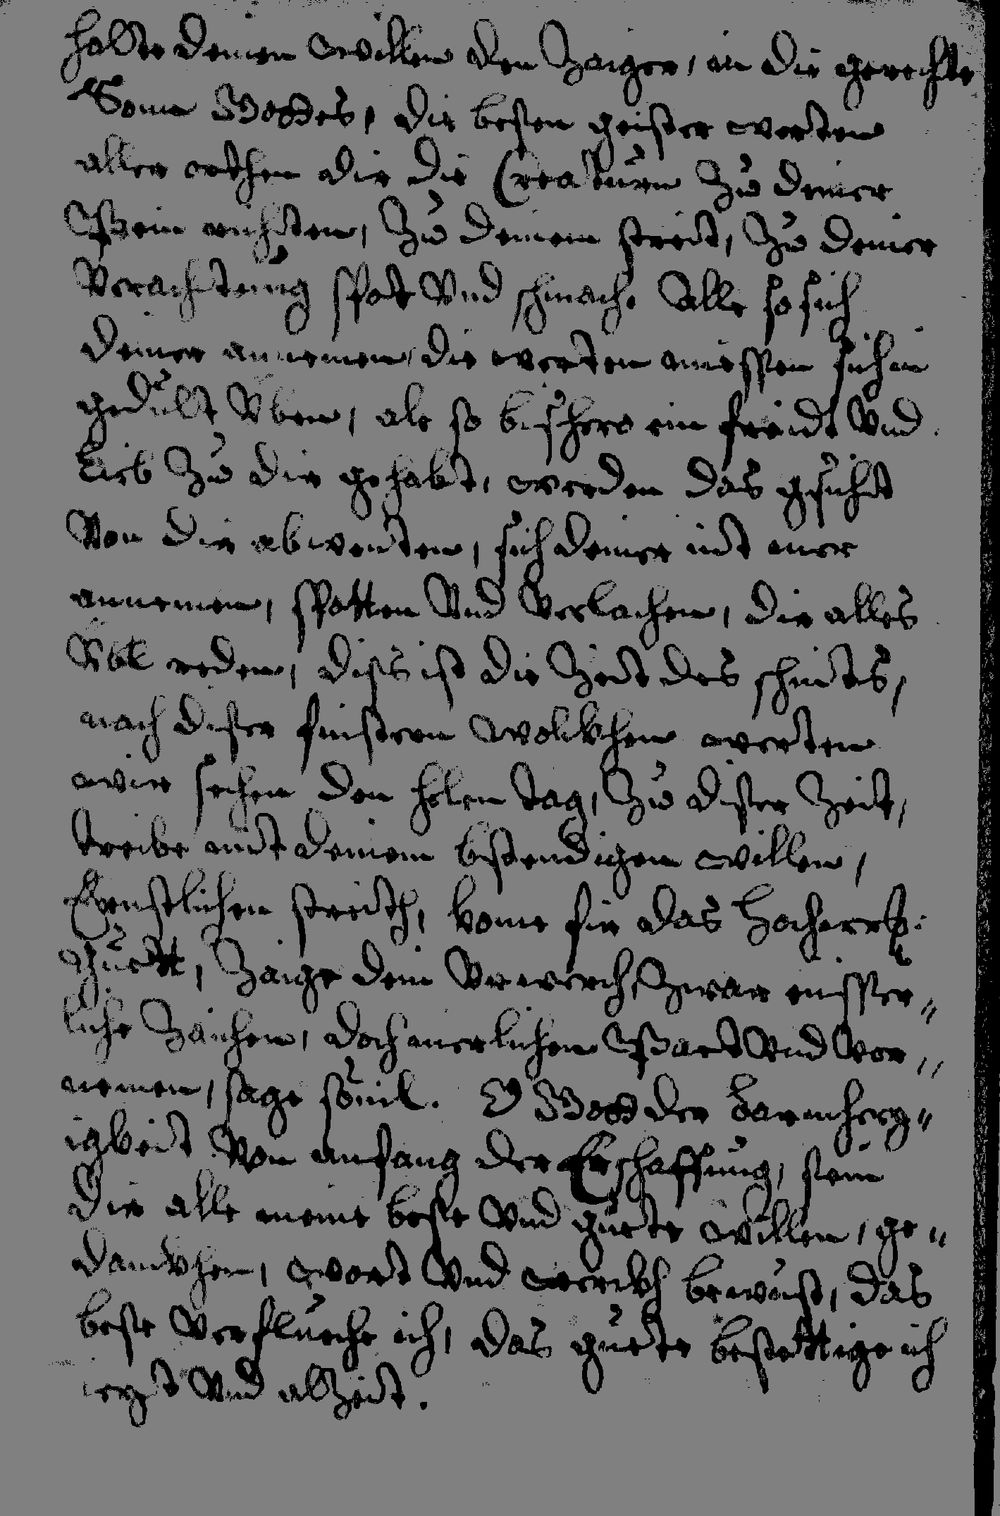 halte deinen willen den Zaiger, in die gerechte
Sonn Gottes, die besen geister werten
aller orthen dir die Creaturn Zu deiner
Pein richten, Zu deinem streit, Zu deiner
Verachtung spot Vnd schmach. Alle so sich
deiner annemen, die werten miessen sich in
gedult Vben, ale so bisshero ein freidt Vnd
Lieb Zu dir gehabt, werden das gesicht
Von dir abwenten, sich deiner nit mer
annemen, spotten Vnd Verlachen, dir alles
Vbl reden, diss ist die Zeit des schnits,
nach diser finstern wolckhen werten
wir sechen den helen tag, Zu diser Zeit,
treibe mit deinem bestendigen willen,
Ernstlichen streith, kome fir das Hocherrk:
guett, Zaige dein Vrwerch, Zwar eisser„
liche Zaichen, doch inerlichen Part Vnd Ver„
nemen, sage souil. O Gott der barmherz„
igkeit Von anfang der Erschaffung, sein
dir alle meine bese Vnd guete willen, ge„
danckhen, wort Vnd werckh bewust, das
bese Verflueche ich, das guete bestettige ich
iezt Vnd alzeit.